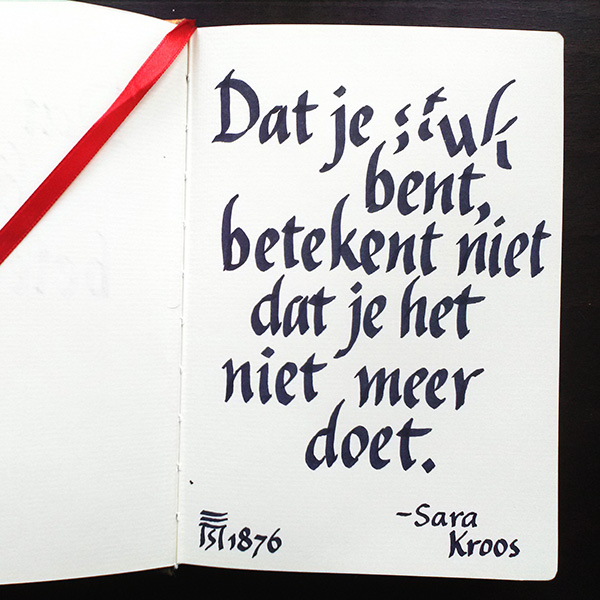 Dat je stuk
bent,
betekent niet
dat je het
niet meer
doet.
-Sara
Kroos
1876